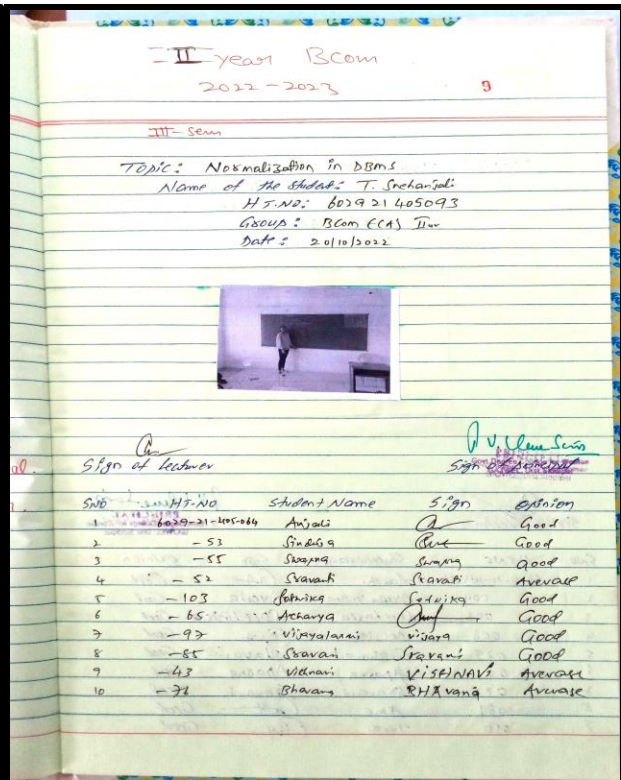 II year Bcom
2022-2023
9
III-Sem
Topic: Normalization in DBMS
Name of the student: T. Snehanjali
H.T.NO: 602921405093
Group: BCom (CA) II
Date: 20/10/2022
Sign of Lecturer Sign of principal
SNO HT-NO Student Name Sign Opinion
1 6029-21-405-064 Anjali Good
2 -53 Sindusa Good
3 -55 Swapna Swapna Good
4 -52 Sravanti Sravati Average
5 -103 Satwika Satwika Good
6 -65 Acharya Good
7 -97 Vijayalaxmi vijaya Good
8 -85 Sravani Sravani Good
9 -43 Vishnavi VISHNAVI Average
10 Bhavana BHAvana Average